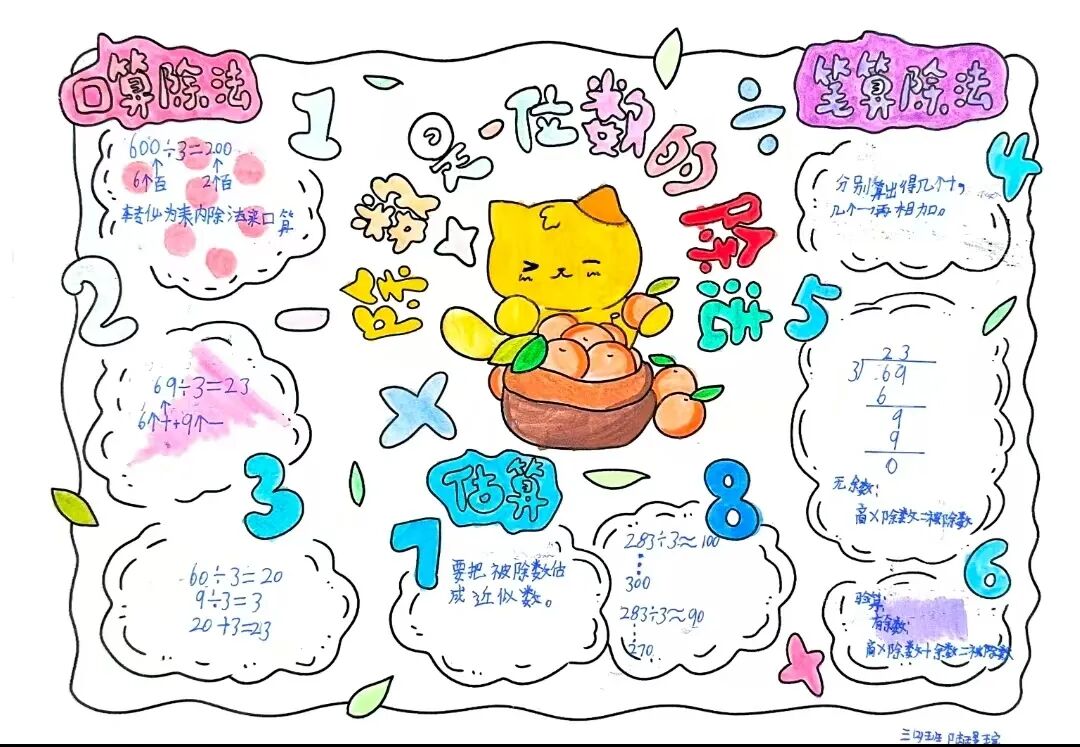 口算除法
1
600÷3=200
6个百 2个百
转为表内除法来口算
2
69÷3=23
6个十+9个一
3
60÷3=20
9÷3=3
20+3=23
除数是一位数的除法
÷
×
估算
7
要把被除数估
成近似数。
8
283÷3≈100
300
283÷3≈90
270
笔算除法
4
分别算出得几个十,
几个一再相加。
5
23
3 69
6
9
9
0
无余数:
商×除数=被除数
6
验算:
有余数:
商×除数+余数=被除数